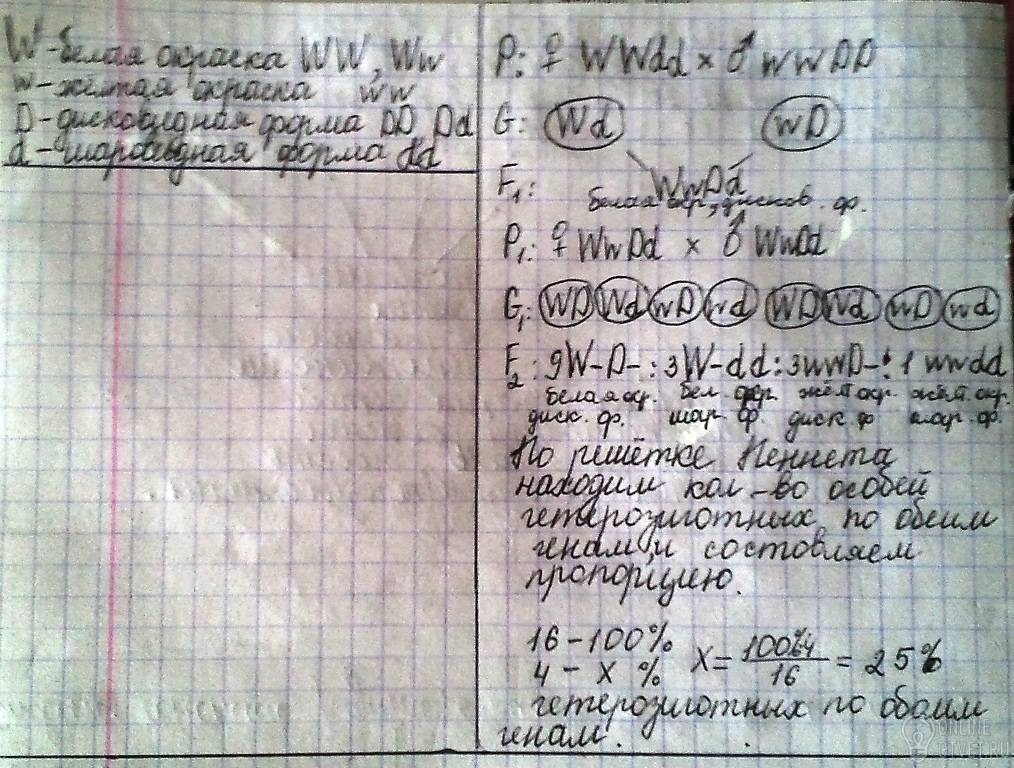 W-белая окраска WW, Ww
w-жёлтая окраска ww
D-дисковидная форма DD Dd
d-шаровидная форма dd
P: ♀ WWdd × ♂ wwDD
G: Wd wD
F₁: WwDd
белая окр., дисков. ф.
P₁: ♀ WwDd × ♂ WwDd
G₁: WD Wd wD wd WD Wd wD wd
F₂: 9W-D- : 3W-dd : 3wwD- : 1 wwdd
белая окр. бел. окр. жёлт окр. жёлт. окр.
диск. ф. шар. ф. диск. ф шар. ф.
По решётке Пеннета
находим кол-во особей
гетерозиготных по обеим
генам и состовляем
пропорцию.
16 - 100%
4 - x % X = 100%·4 / 16 = 25%
гетерозиготных по обоим
генам.
ONLINE
OTVET.RU